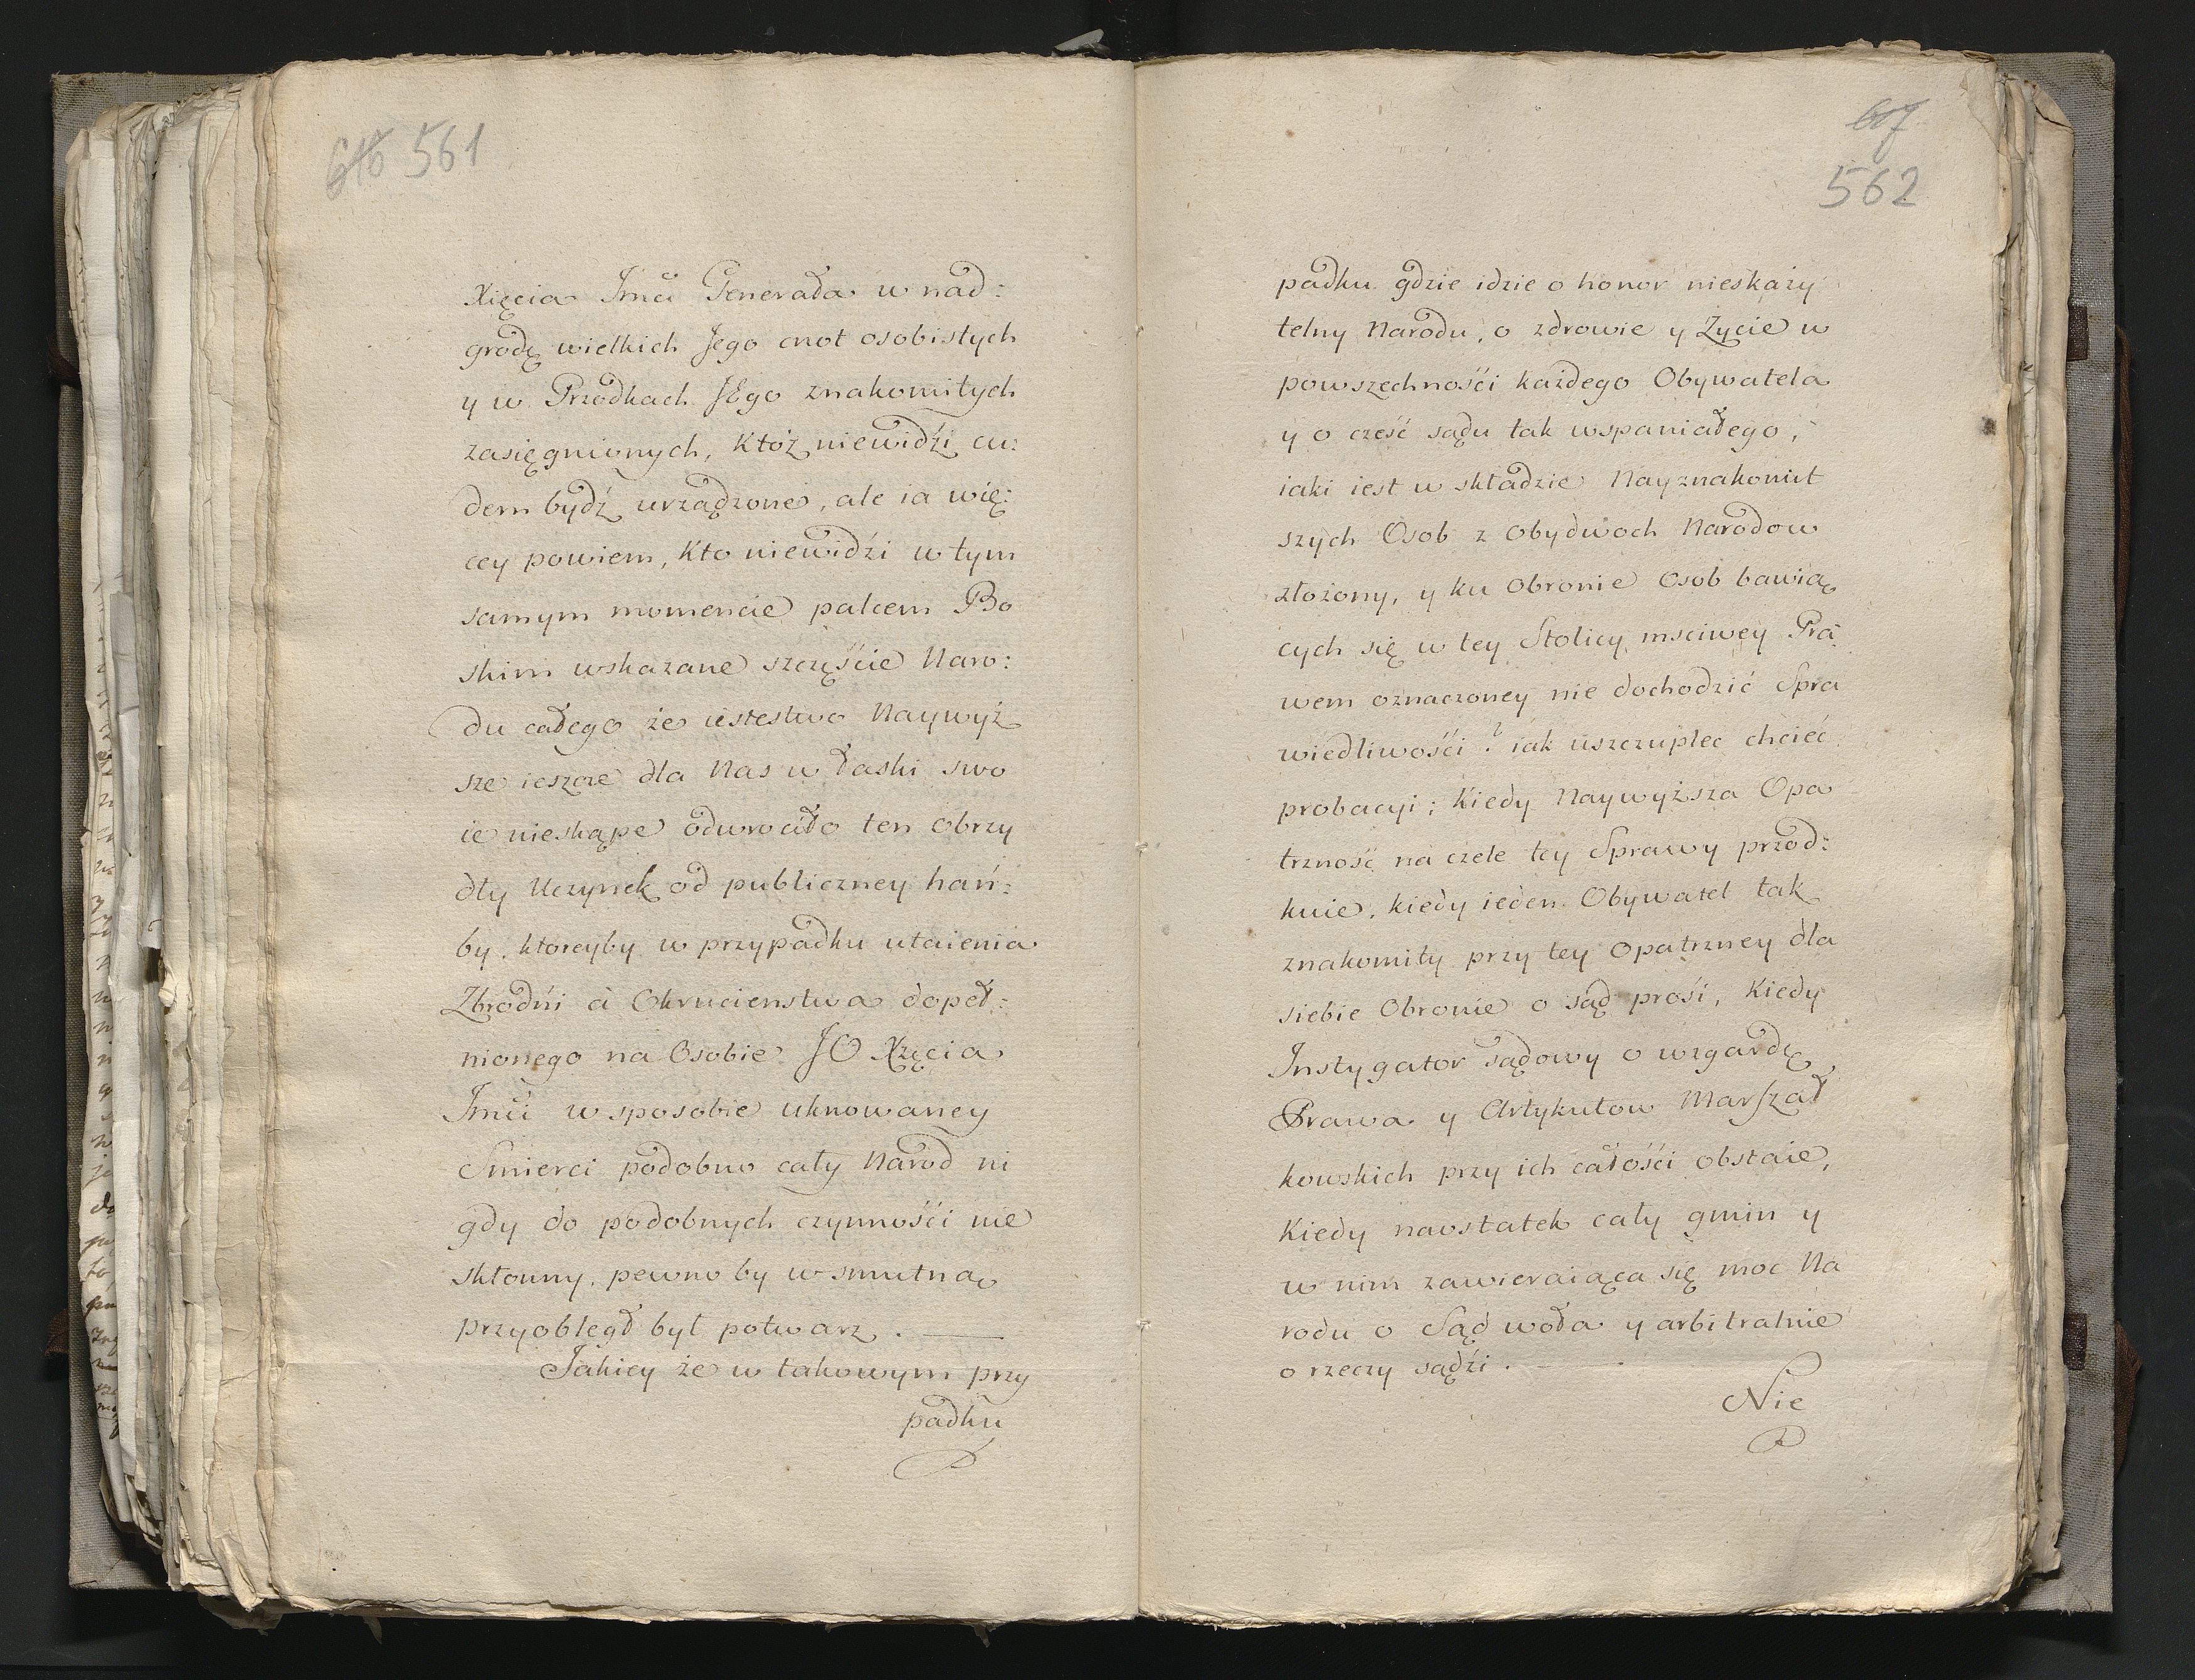 561
Xięcia Jmći Generała w nad:
grodę wielkich Jego cnot osobistych
y w Przodkach JEgo znakomitych
zasięgnionych, Ktoż niewidźi cu:
dem bydź urządzone, ale ia wię:
cey powiem, Kto niewidźi w tym
samym momencie palcem Bo
skim wskazane szczęście Naro:
du całego że iestestwo Naywyż
sze ieszcze dla Nas w łaski swo
ie nieskąpe odwrociło ten obrzy
dły Uczynek od publiczney hań:
by, ktoreyby w przypadku utaienia
Zbrodni á Okrucienstwa dopeł:
nionego na Osobie JO Xzęcia
Jmći w sposobie uknowaney
Smierci podobno cały Narod ni
gdy do podobnych czynnośći nie
skłonny, pewno by w smutną
przyobległ był potwarz.
Jakiey że w takowym przy
padku
607
562
padku gdzie idzie o honor nieskazy
telny Narodu, o zdrowie y Życie w
powszechnośći każdego Obywatela
y o cześć sądu tak wspaniałego,
iaki iest w składzie Nayznakomit
szych Osob z obydwoch Narodow
złożony, y ku obronie Osob bawią
cych się w tey Stolicy msciwey Pra:
wem oznaczoney nie dochodzić Spra
wiedliwośći? iak uszczuplec chcieć
probacyi; Kiedy Naywyższa Opa
trzność na czele tey Sprawy przod:
kuie, kiedy ieden Obywatel tak
znakomity przy tey opatrzney dla
siebie Obronie o sąd prosi, Kiedy
Instygator sądowy o wzgardę
Prawa y Artykułow Marszał
kowskich przy ich całośći obstaie,
Kiedy naostatek cały gmin y
w nim zawieraiąca się moc Na
rodu o Sąd woła y arbitralnie
o rzeczy sądźi.
Nie